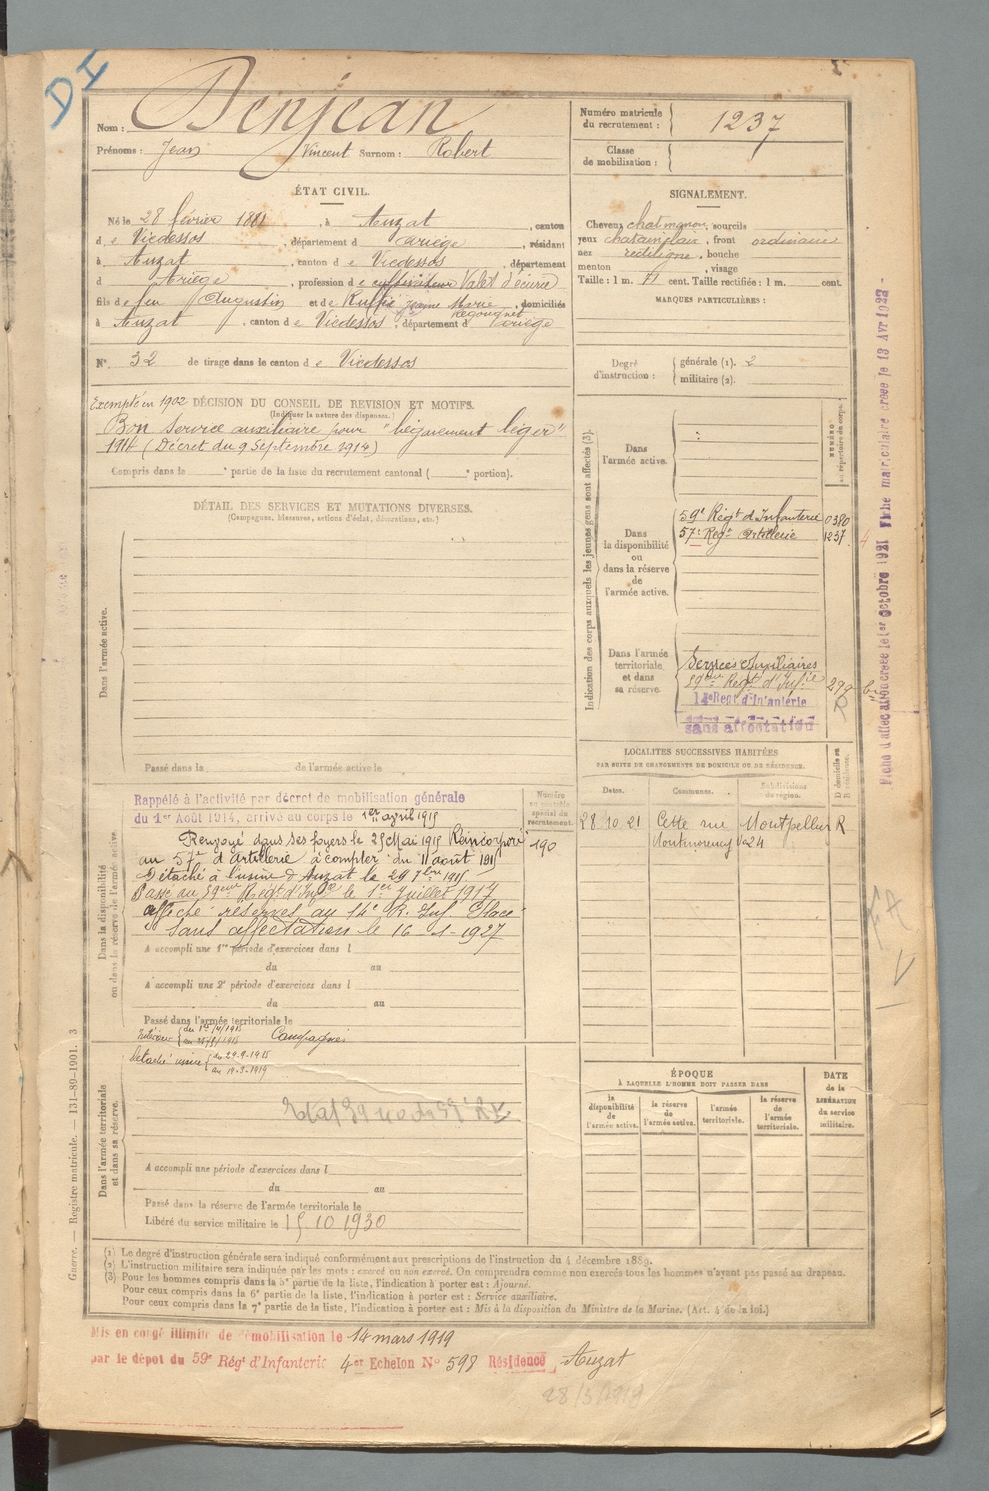 DI
Nom : Denjean
Prénoms : Jean Vincent Surnom : Robert
Numéro matricule du recrutement : 1237
Classe de mobilisation :
ÉTAT CIVIL.
Né le 28 février 1881, à Auzat, canton
d e Vicdessos, département d Ariège, résidant
à Auzat, canton d e Vicdessos, département
d Ariège, profession d e cultivateur Valet d'écurie
fils de feu Augustin et de Ruffié Jeanne Marie Regougnet, domiciliés
à Auzat, canton d e Vicdessos, département d Ariège
N° 32 de tirage dans le canton d e Vicdessos
SIGNALEMENT.
Cheveux chat mgnon, sourcils
yeux chatainclair, front ordinaire
nez rectiligne, bouche
menton, visage
Taille : 1 m. 71 cent. Taille rectifiée : 1 m. cent.
MARQUES PARTICULIÈRES :
Degré d'instruction : générale (1). 2
militaire (2).
Exempté en 1902 DÉCISION DU CONSEIL DE REVISION ET MOTIFS.
(Indiquer la nature des dispenses.)
Bon Service auxiliaire pour "bégaiement léger"
1914 (Décret du 9 Septembre 1914)
Compris dans la e partie de la liste du recrutement cantonal ( e portion).
DÉTAIL DES SERVICES ET MUTATIONS DIVERSES.
(Campagnes, blessures, actions d'éclat, décorations, etc.)
Dans l'armée active.
Passé dans la de l'armée active le
Indication des corps auxquels les jeunes gens sont affectés (3).
NUMÉRO au répertoire du corps.
Dans l'armée active.
Dans la disponibilité ou dans la réserve de l'armée active.
59e Régt d'Infanterie 0380
57e Régt Artillerie 1237
Dans l'armée territoriale et dans sa réserve.
Services Auxiliaires
59ème Régt d'Infie 299
14e Regt d'Infanterie R
sans affectation
Fiche d'affectation créée le 1er octobre 1921 Fiche matriculaire créée le 13 Avr 1923
LOCALITÉS SUCCESSIVES HABITÉES
PAR SUITE DE CHANGEMENTS DE DOMICILE OU DE RÉSIDENCE.
Dates. Communes. Subdivisions de région. D domicile ou R résidence.
28.10.21 Cette rue Montpellier R
Montmorency 24
Dans la disponibilité ou dans la réserve de l'armée active
Numéro au contrôle spécial du recrutement.
190
Rappelé à l'activité par décret de mobilisation générale
du 1er Août 1914, arrivé au corps le 1er avril 1915
Renvoyé dans ses foyers le 25 Mai 1915 Réincorporé
au 57e d'Artillerie à compter du 11 août 1915
Détaché à l'usine d'Auzat le 29 7bre 1915
Passé au 59ème Régt d'Infie le 1er Juillet 1917
Affecté réserves au 14e R. Inf. Placé
Sans affectation le 16-1-1927
A accompli une 1re période d'exercices dans l
du au
A accompli une 2e période d'exercices dans l
du au
Passé dans l'armée territoriale le
Campagnes
Intérieur du 1er/4/1915
au 25/5/1915
Détaché usine du 29.9.1915
au 19.3.1919
Dans l'armée territoriale et dans sa réserve.
A accompli une période d'exercices dans l
du au
Passé dans la réserve de l'armée territoriale le
Libéré du service militaire le 15 10 1930
ÉPOQUE
À LAQUELLE L'HOMME DOIT PASSER DANS
la disponibilité de l'armée active.
la réserve de l'armée active.
l'armée territoriale.
la réserve de l'armée territoriale.
DATE de la LIBÉRATION du service militaire.
(1) Le degré d'instruction générale sera indiqué conformément aux prescriptions de l'instruction du 4 décembre 1889.
(2) L'instruction militaire sera indiquée par les mots : exercé ou non exercé. On comprendra comme non exercés tous les hommes n'ayant pas passé au drapeau.
(3) Pour les hommes compris dans la 5e partie de la liste, l'indication à porter est : Ajourné.
Pour ceux compris dans la 6e partie de la liste, l'indication à porter est : Service auxiliaire.
Pour ceux compris dans la 7e partie de la liste, l'indication à porter est : Mis à la disposition du Ministre de la Marine. (Art. 4 de la loi.)
Guerre. — Registre matricule. 131-89-1901. 3
Mis en congé illimité de démobilisation le 14 mars 1919
par le dépot du 59e Régt d'Infanterie 4er Echelon N° 598 Résidence Auzat
28/3/1919